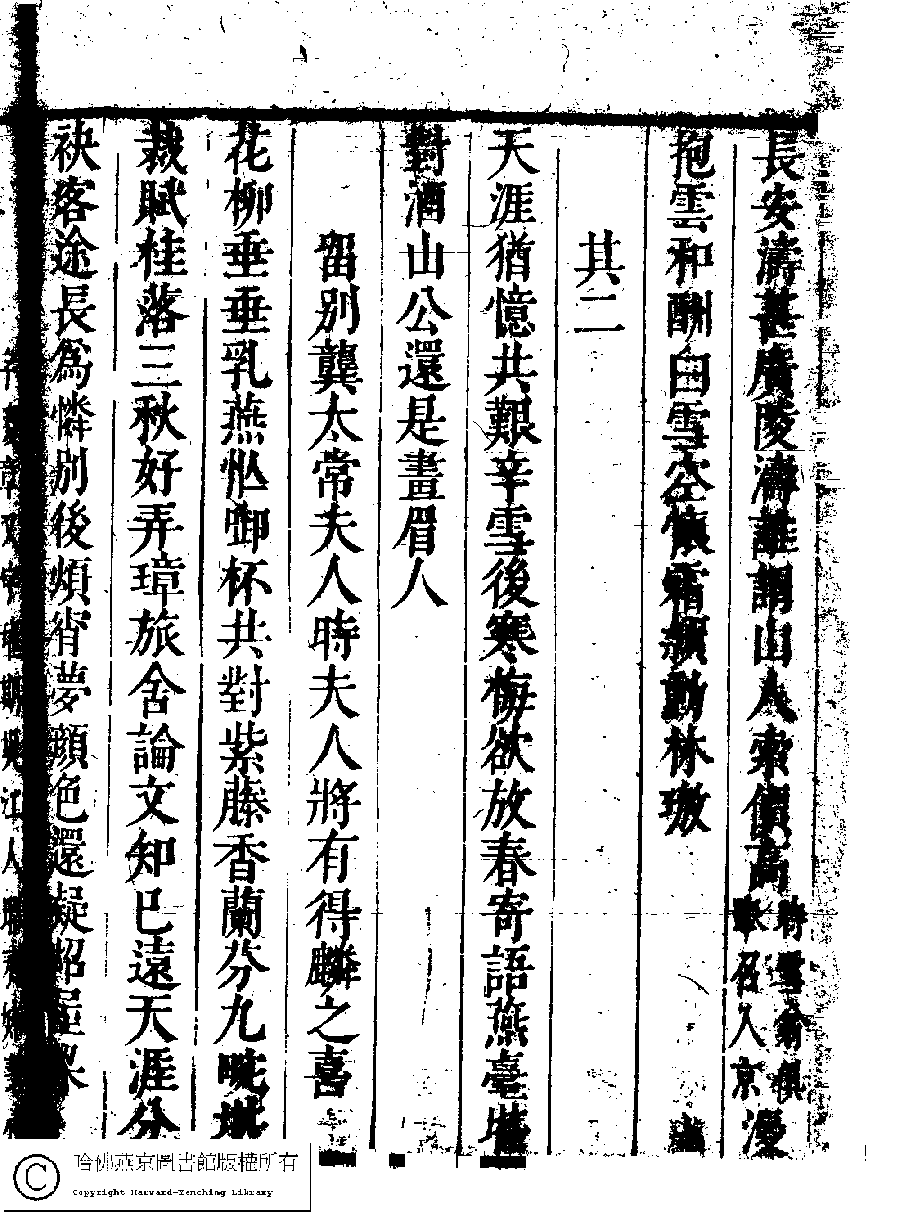 長安濤甚廣陵濤誰謂山人索價高時雪翁俱
召入京漫
抱雲和酬白雪空慚霜韻動林璈
其二
天涯猶憶共艱辛雪後寒梅欲放春寄語燕臺
對酒山公還是畫眉人
留別龔太常夫人時夫人將有得麟之喜
花柳垂垂乳燕忙啣杯共對紫藤香蘭芬九畹堪
裁賦桂落三秋好弄璋旅舍論文知已遠天涯分
袂客途長為憐別後頻宵夢顏色還疑照屋梁
哈佛燕京圖書館版權所有
Copyright Harvard-Yenching Library